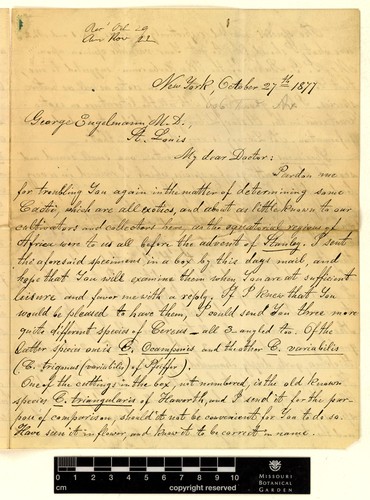 Rec' Oct 29
Ans Nov
New York, October 27th 1877.
George Engelmann, M.D.,
St. Louis
My dear Doctor:
Pardon me
for troubling You again in the matter of determining some
Cactii, which are all exotics, and about as little known to our
cultivators and collectors here, as the equatorial regions of
Africa were to us all before the advent of Stanley. I sent
the aforesaid specimens in a box by this days mail, and
hope that You will examine them when You are at sufficient
leisure and favor me with a reply. If I knew that You
would be pleased to have them, I could send You three more
quite different species of Cereus – all 3-angled too. Of the
latter species one is C. Ocamponis, and the other C. variabilis
(C. trigonus (variabilis) of Pfeiffer).
One of the cuttings in the box, not numbered, is the old known
species C. triangularis of Haworth, and I send it for the pur-
pose of comparison, should it not be convenient for You to do so.
Have seen it in flower, and knew it to be correct in name.
0 1 2 3 4 5 6 7 8 9 10
cm
copyright reserved
MISSOURI
BOTANICAL
GARDEN